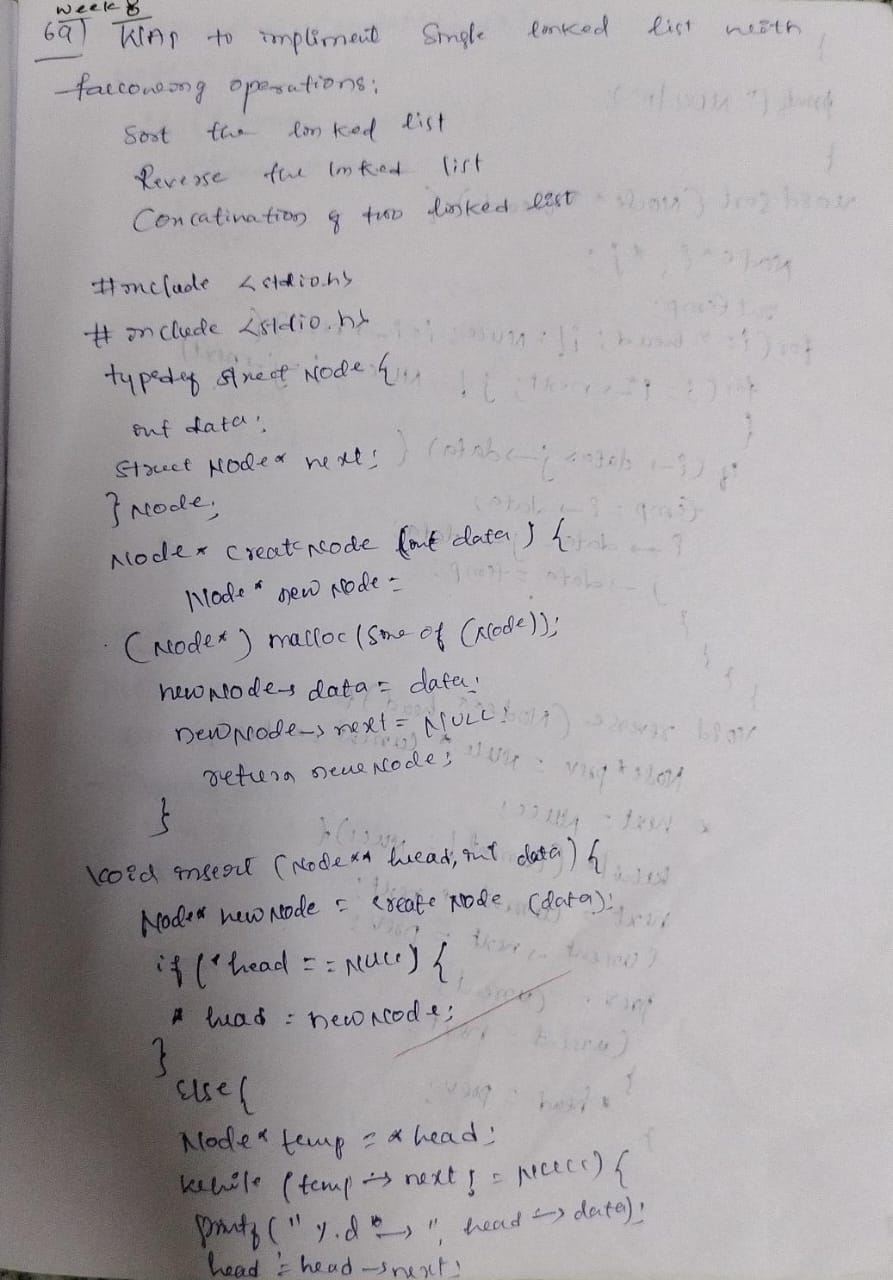 Week 8
6a) WAP to impliment Single linked list with
following operations:
Sort the linked list
Reverse the linked list
Concatination of two linked list
#include <stdio.h>
# include <stdio.h>
typedef struct Node {
int data;
struct Node* next;
} Node;
Node* createNode (int data) {
Node* new Node =
(Node*) malloc (Size of (Node));
newNode→ data = data;
newNode→ next = NULL;
return newNode;
}
void insert (Node** head, int data) {
Node* newNode = create Node (data);
if (*head == NULL) {
* head = newNode;
}
Else {
Node* temp = * head;
while (temp → next != NULL) {
printf (" %d → ", head → data);
head = head → next;